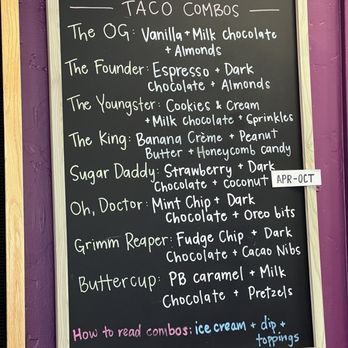 TACO COMBOS
The OG: Vanilla + Milk chocolate
+ Almonds
The Founder: Espresso + Dark
Chocolate + Almonds
The Youngster: Cookies & Cream
+ Milk chocolate + Sprinkles
The King: Banana Crème + Peanut
Butter + Honeycomb candy
Sugar Daddy: Strawberry + Dark
Chocolate + coconut APR-OCT
Oh, Doctor: Mint Chip + Dark
Chocolate + Oreo bits
Grimm Reaper: Fudge Chip + Dark
Chocolate + Cacao Nibs
Buttercup: PB caramel + Milk
Chocolate + Pretzels
How to read combos: ice cream + dip +
toppings